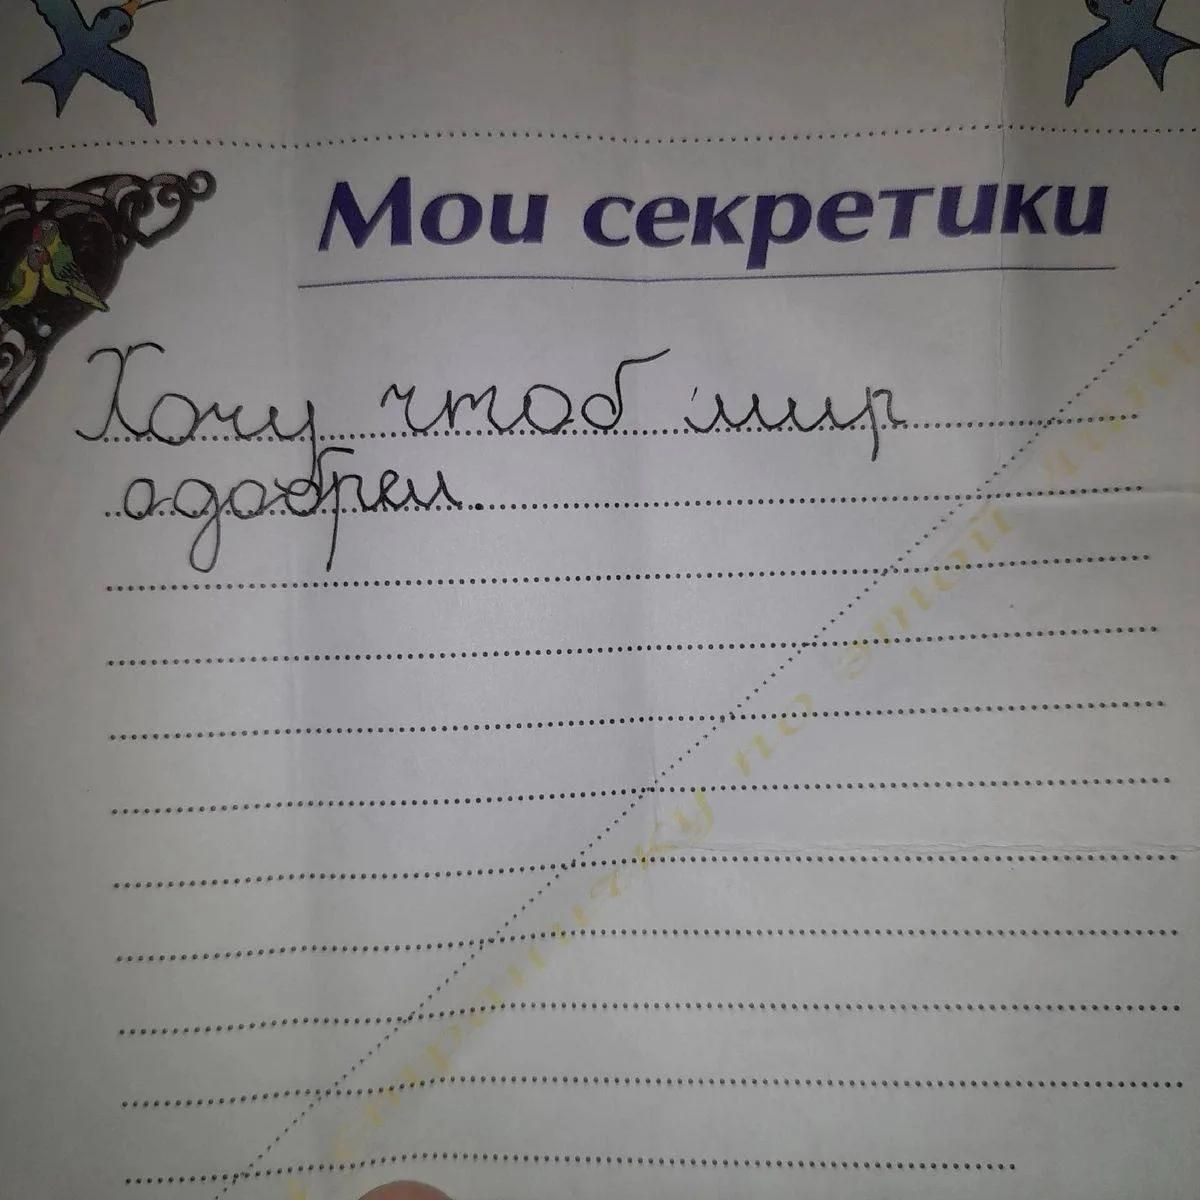 Мои секретики
Хочу чтоб мир
адобрел.
страничку по этой линии